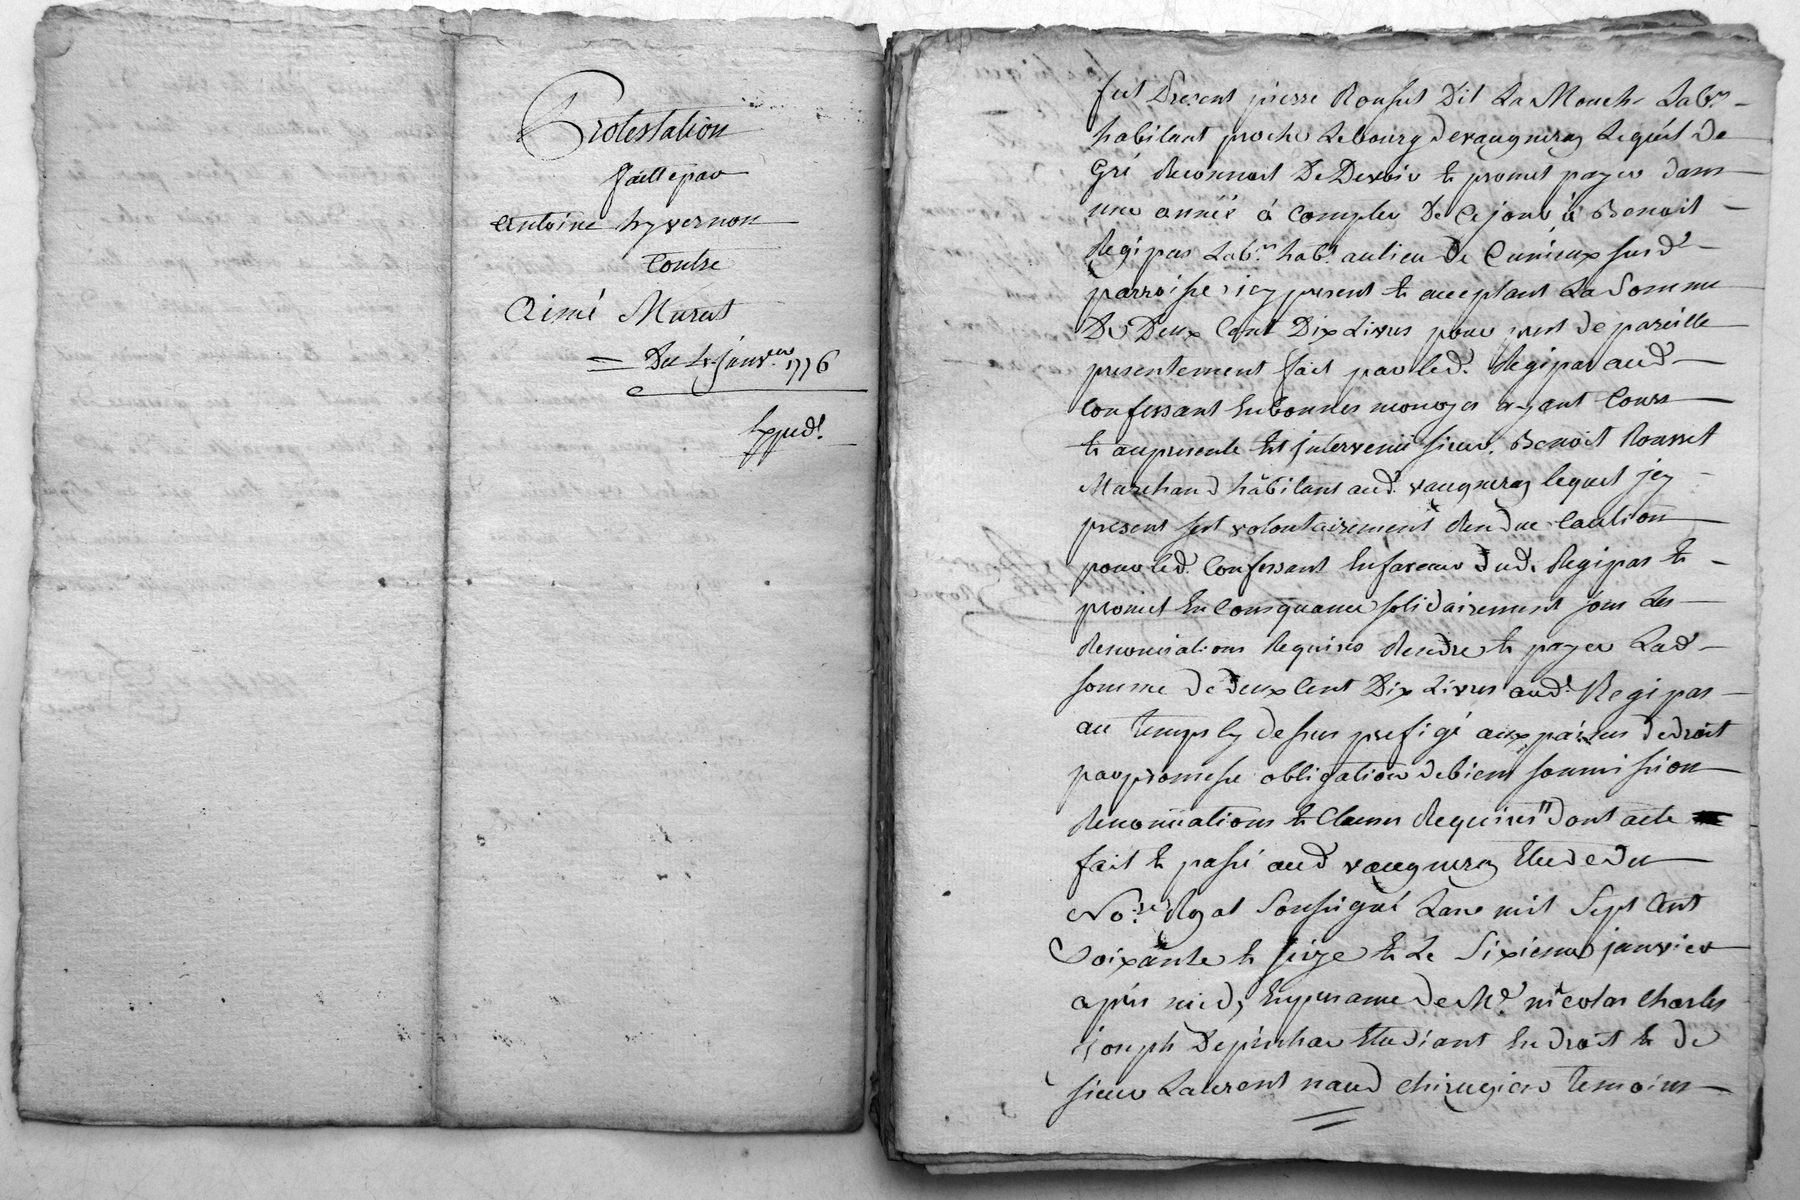 Protestation
faitte par
antoine hyvernon
Contre
Aimé Murat
= Du 4 janv.er 1776
Exped.
fut Present pierre Ronset Dit La Mouche Lab.r
habitant proche Lebourg devaugneray Lequel de
Gré Reconnoit De Devoir & promet payer dans
une année à Compter De Ce jour à Benoit
Regipas Lab.r hab.t au lieu de Cunieux sur d.e
parroisse icy present & acceptant La Somme
De Deux Cent Dix Livres pour prest de pareille
presentement fait par led. Regipas aud.
Confessant En bonnes monoyes ayant Cours
& au presente Est intervenu sieur Benoit Rousset
Marchand habitant aud. vaugneray lequel icy
present sest volontairement Rendue Caution
pour led. Confessant En faveur dud. Regipas &
promet En Consequance solidairement sous les
Renonciations Requises Rendre & payer Lad.
somme de deux Cent Dix Livres aud. Regipas
au temps Cy dessus prefigé aux peines de droit
par promesse obligation de biens soumission
Renonciations & Clauses Requises" dont acte
fait & passé aud vaugneray Etude du
No.re Royal Soussigné Lan mil Sept Cent
Soixante & seize & Le Sixieme janvier
après midy En presance de M.e nicolas Charles
joseph Depinhac Etudiant En droit & de
sieur Laurent naud chirugien temoins